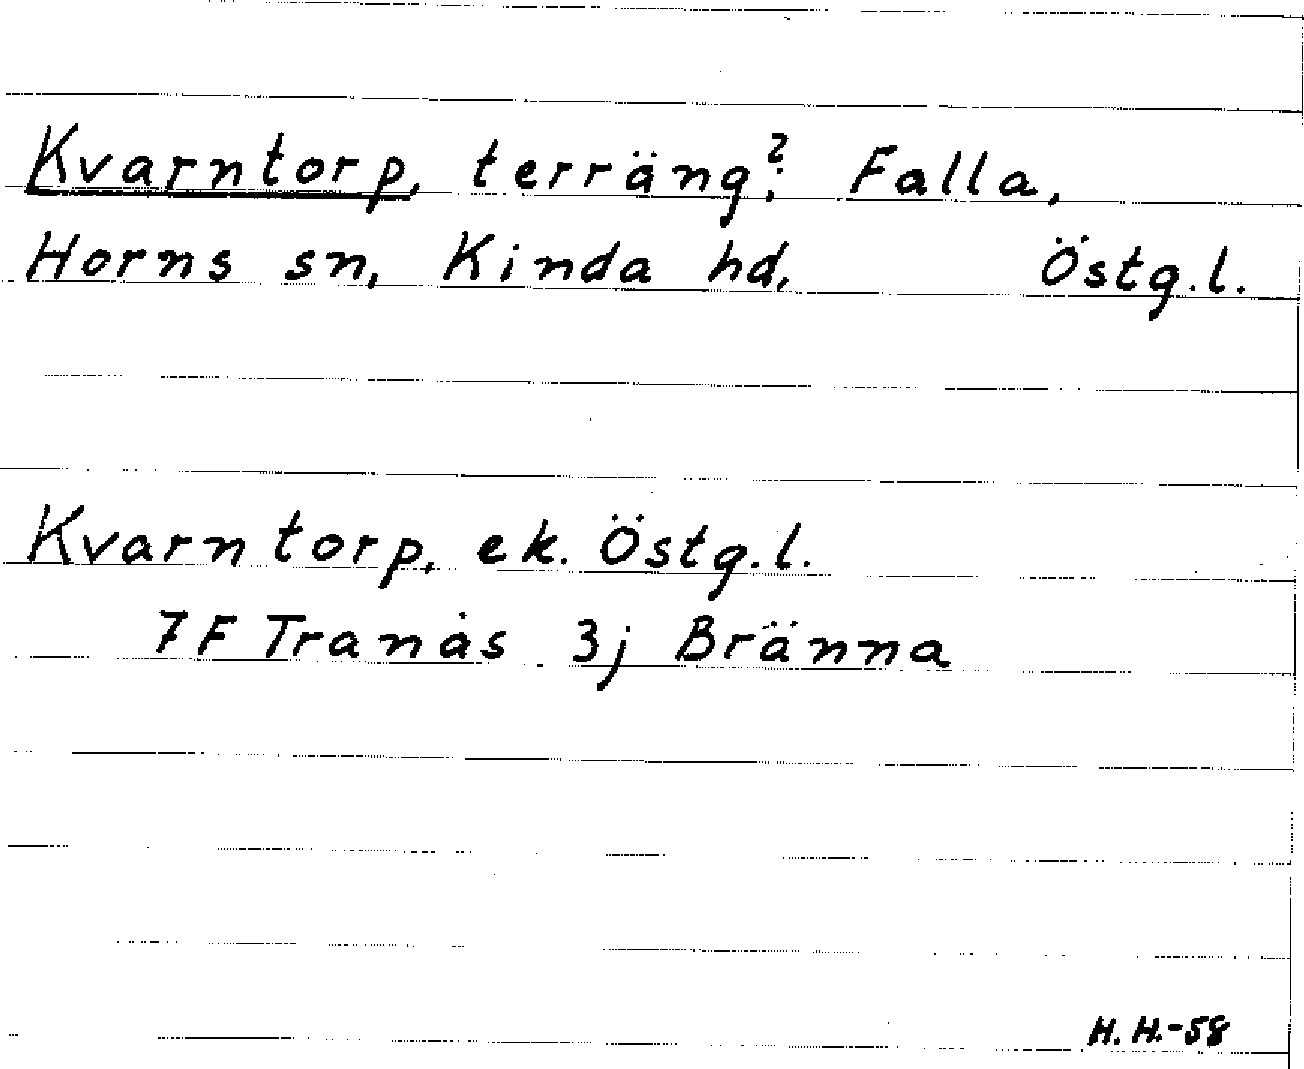 Kvarntorp, terräng?; Falla,
Horns sn, Kinda hd, Östg.l.
Kvarntorp, ek. Östg.l.
7F Tranås 3j Bränna
H.H.-58